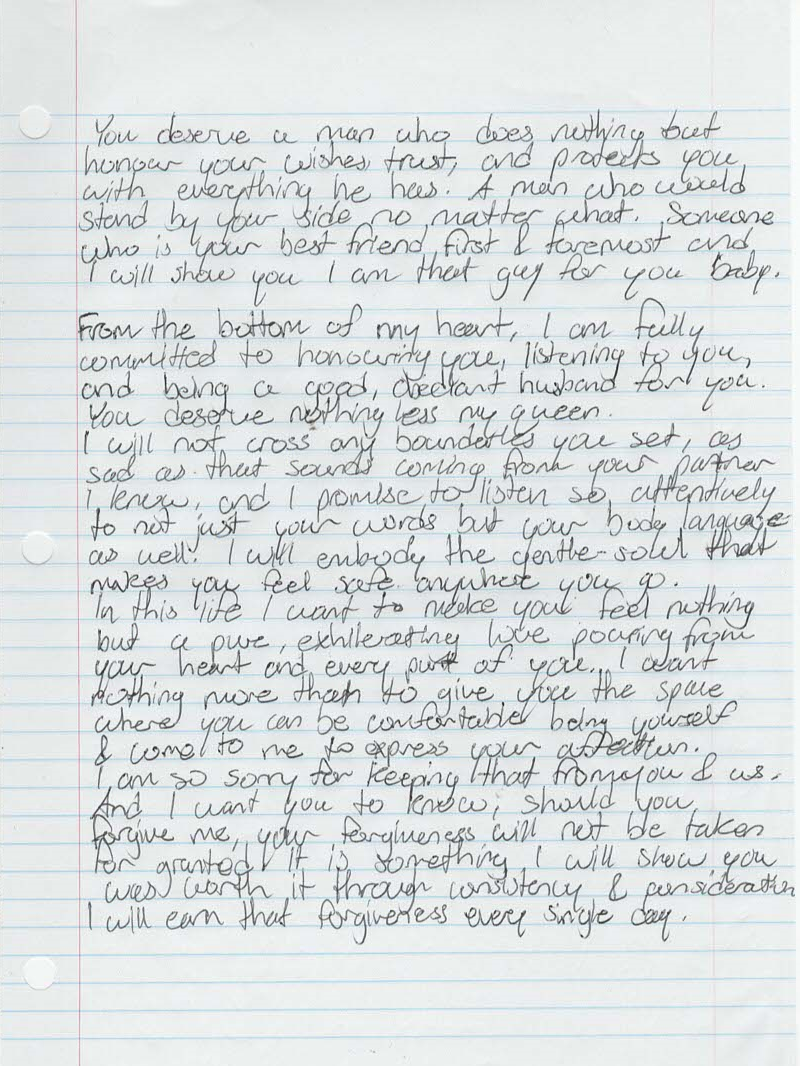 You deserve a man who does nothing but
honour your wishes, trust, and protects you
with everything he has. A man who would
stand by your side no matter what. Someone
who is your best friend first & foremost and
I will show you I am that guy for you baby.
From the bottom of my heart, I am fully
committed to honouring you, listening to you,
and being a good, obediant husband for you.
You deserve nothing less my queen.
I will not cross any boundaries you set, as
sad as that sounds coming from your partner
I know, and I promise to listen so attentively
to not just your words but your body language
as well. I will embody the gentle-soul that
makes you feel safe anywhere you go.
In this life I want to make you feel nothing
but a pure, exhilerating love pouring from
your heart and every part of you. I want
nothing more than to give you the space
where you can be comfortable being yourself
& come to me to express your affection.
I am so sorry for keeping that from you & us.
And I want you to know, should you
forgive me, your forgiveness will not be taken
for granted. It is something I will show you
was worth it through consistency & consideration
I will earn that forgiveness every single day.